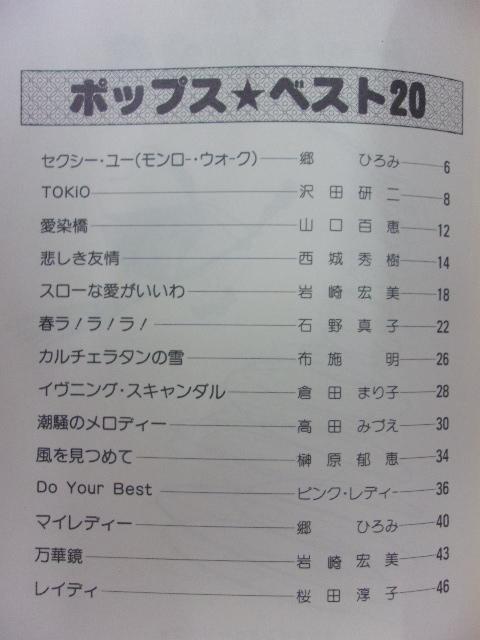 ポップス★ベスト20
セクシー・ユー(モンロー・ウォーク)──郷 ひろみ──6
TOKIO──沢田研二──8
愛染橋──山口百恵──12
悲しき友情──西城秀樹──14
スローな愛がいいわ──岩崎宏美──18
春ラ!ラ!ラ!──石野真子──22
カルチェラタンの雪──布施 明──26
イヴニング・スキャンダル──倉田まり子──28
潮騒のメロディー──高田みづえ──30
風を見つめて──榊原郁恵──34
Do Your Best──ピンク・レディー──36
マイレディー──郷 ひろみ──40
万華鏡──岩崎宏美──43
レイディ──桜田淳子──46